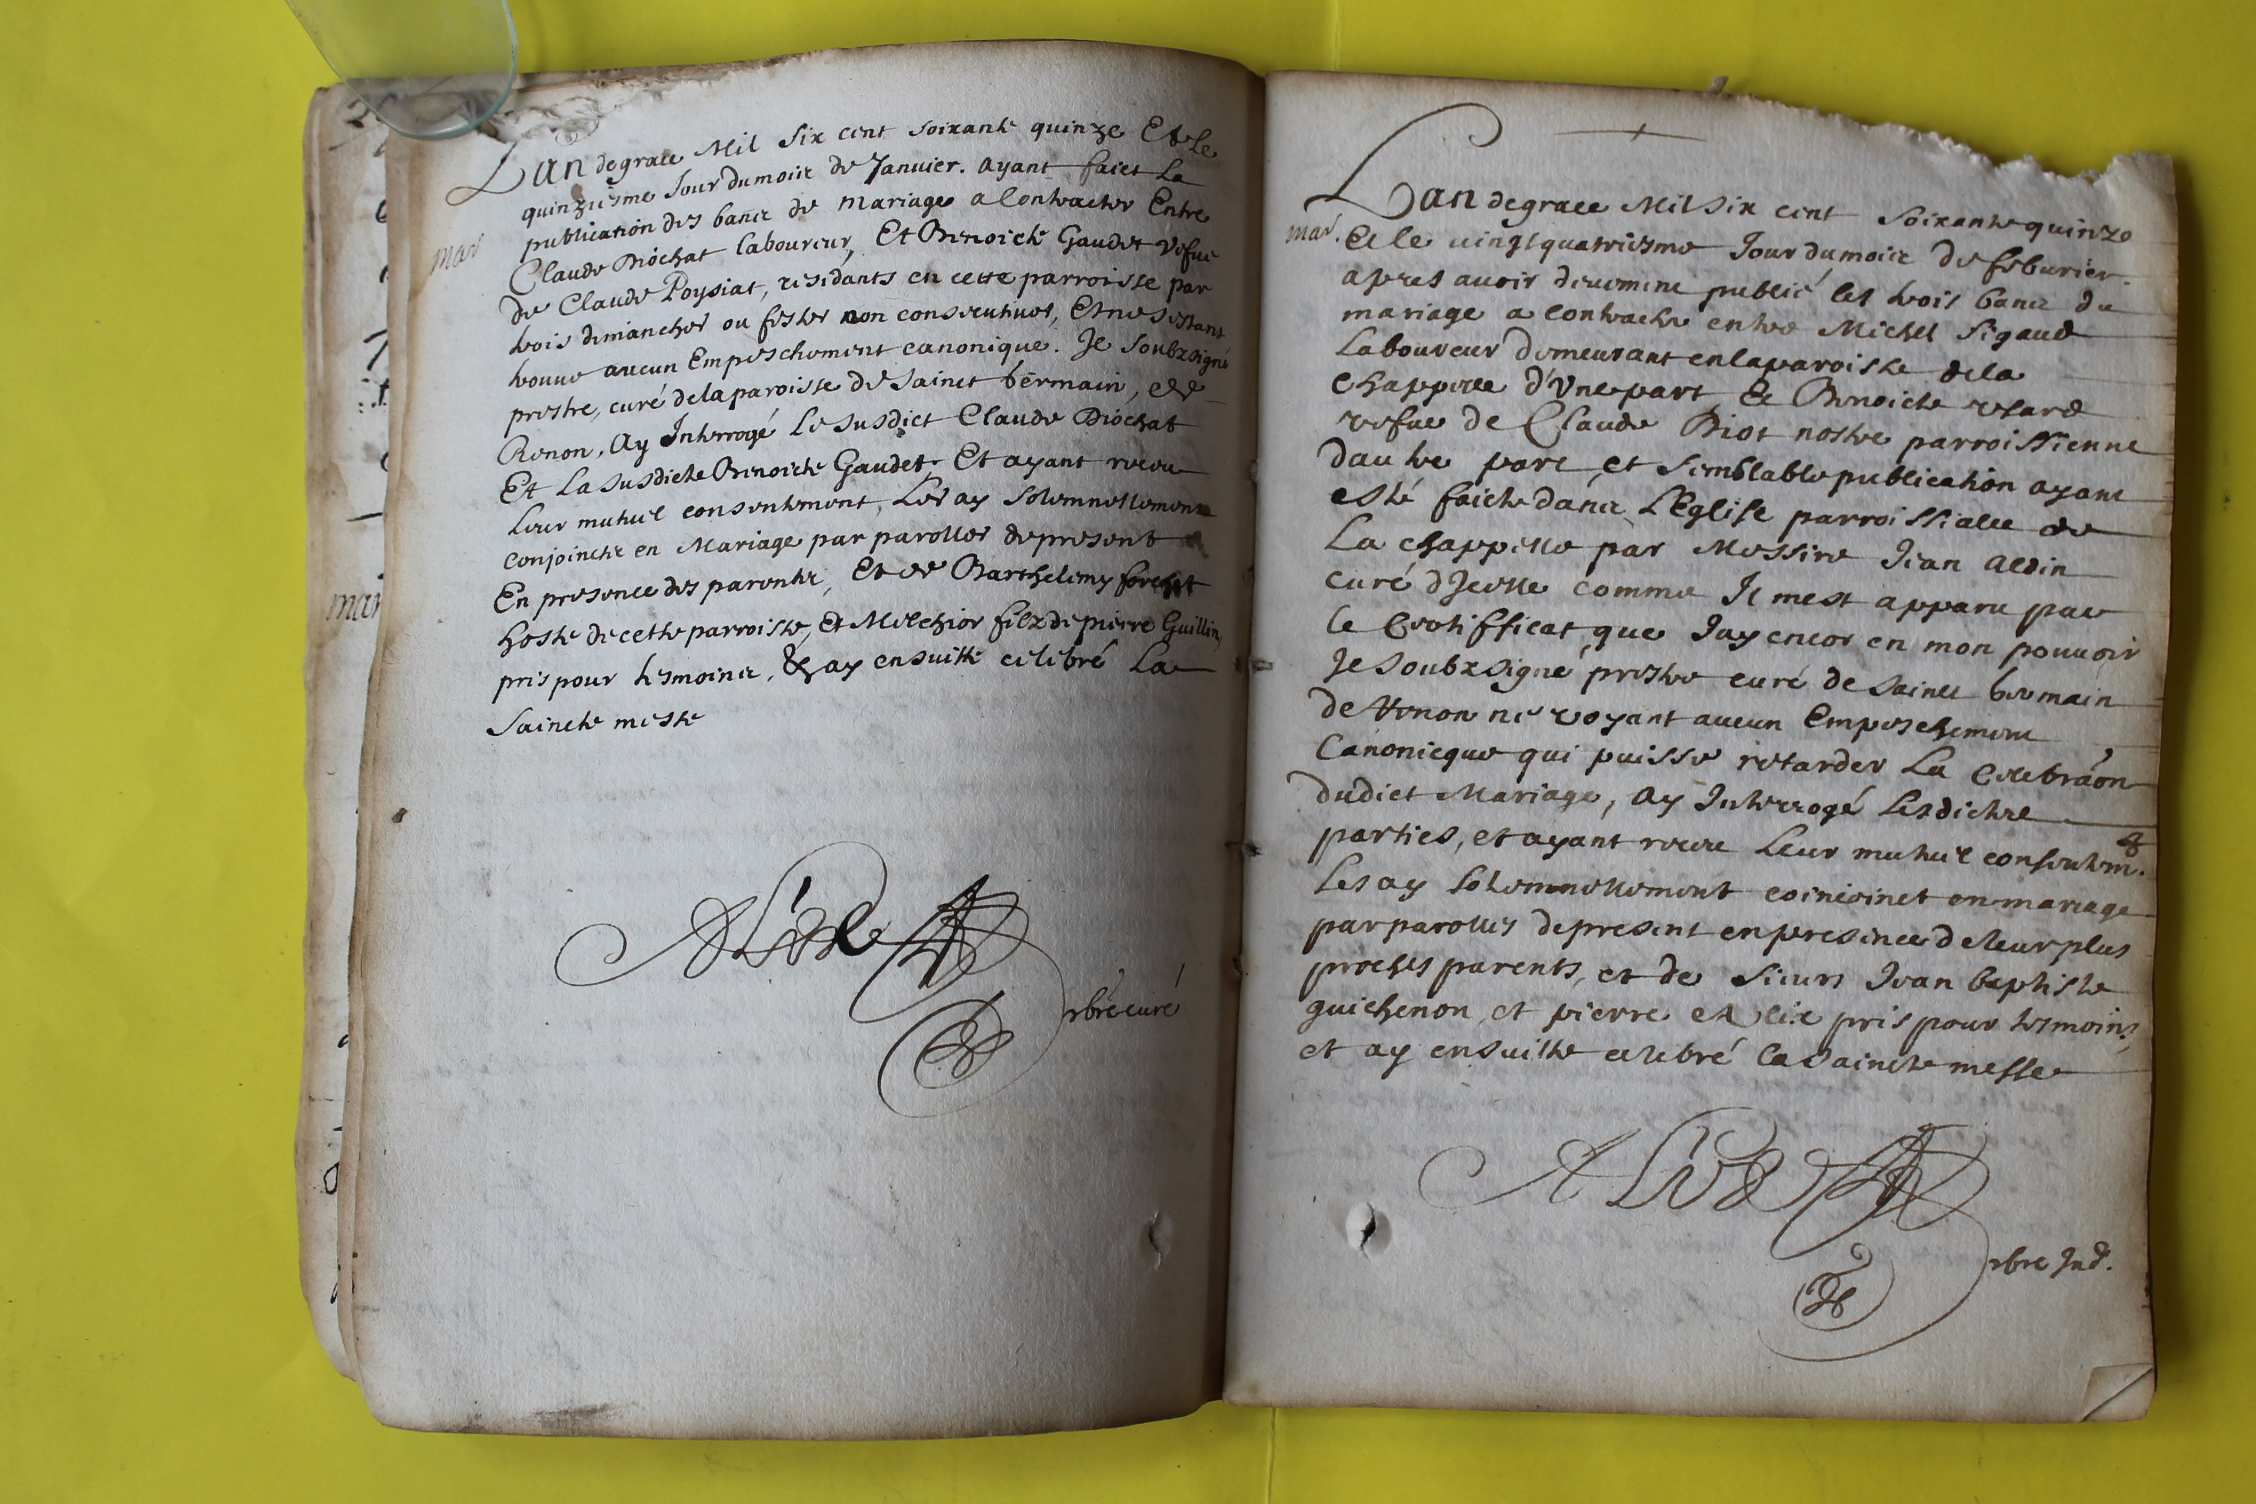 Lan de grace Mil Six cent soixante quinze Et le
quinziesme Jour du mois de Janvier. ayant faict la
publication des bancz de mariage a Contracter Entre
mar
Claude Biochat laboureur, Et Benoicte Gaudet vefue
de Claude Poysiat, residants en cette parroisse par
trois dimanches ou festes non consecutives, Et ne s'estant
trouve aucun Empeschement canonique. Je soubzsigné
prestre, curé de la paroisse de sainct Germain, de
Renon, ay Interrogé Le susdict Claude Biochat
Et La susdicte Benoicte Gaudet, Et ayant receu
leur mutuel consentement, Les ay solemnellement
conjoinctz en Mariage par parolles de present
En presence des parentz, Et de Barthelemy
hoste de cette parroisse, Et Melchior filz de pierre Guillin,
pris pour tesmoincz, & ay ensuitte celebré La
saincte messe
curé
mar
Lan de grace Mil Six cent soixante quinze
mar.
Et le vingt quatriesme Jour du mois de feburier
apres avoir deuement publié les trois bancz du
mariage a contracter entre Michel Sigaud
Laboureur demeurant en la paroisse de la
chappelle d'une part & Benoicte
vefue de Claude Biot nostre parroissienne
dautre part, et semblable publication ayant
esté faicte dancz L'Eglise parroissialle de
La chappelle par Messire Jean
curé d'Jcelle comme Il m'est apparu par
le Certifficat que Jay encor en mon pouvoir
Je soubzsigné prestre curé de sainct Germain
de Renon ne voyant aucun Empeschement
Canonicque qui puisse retarder La Celebraon
dudict Mariage, ay Interrogé Lesdictes
parties, et ayant receu Leur mutuel consentemt.
Les ay solemnellement coinioinct en mariage
par parolles de present en presence de leur plus
proches parents, et de sieurs Jean baptiste
guichenon, et pierre pris pour tesmoins,
et ay ensuitte celebré la saincte messe